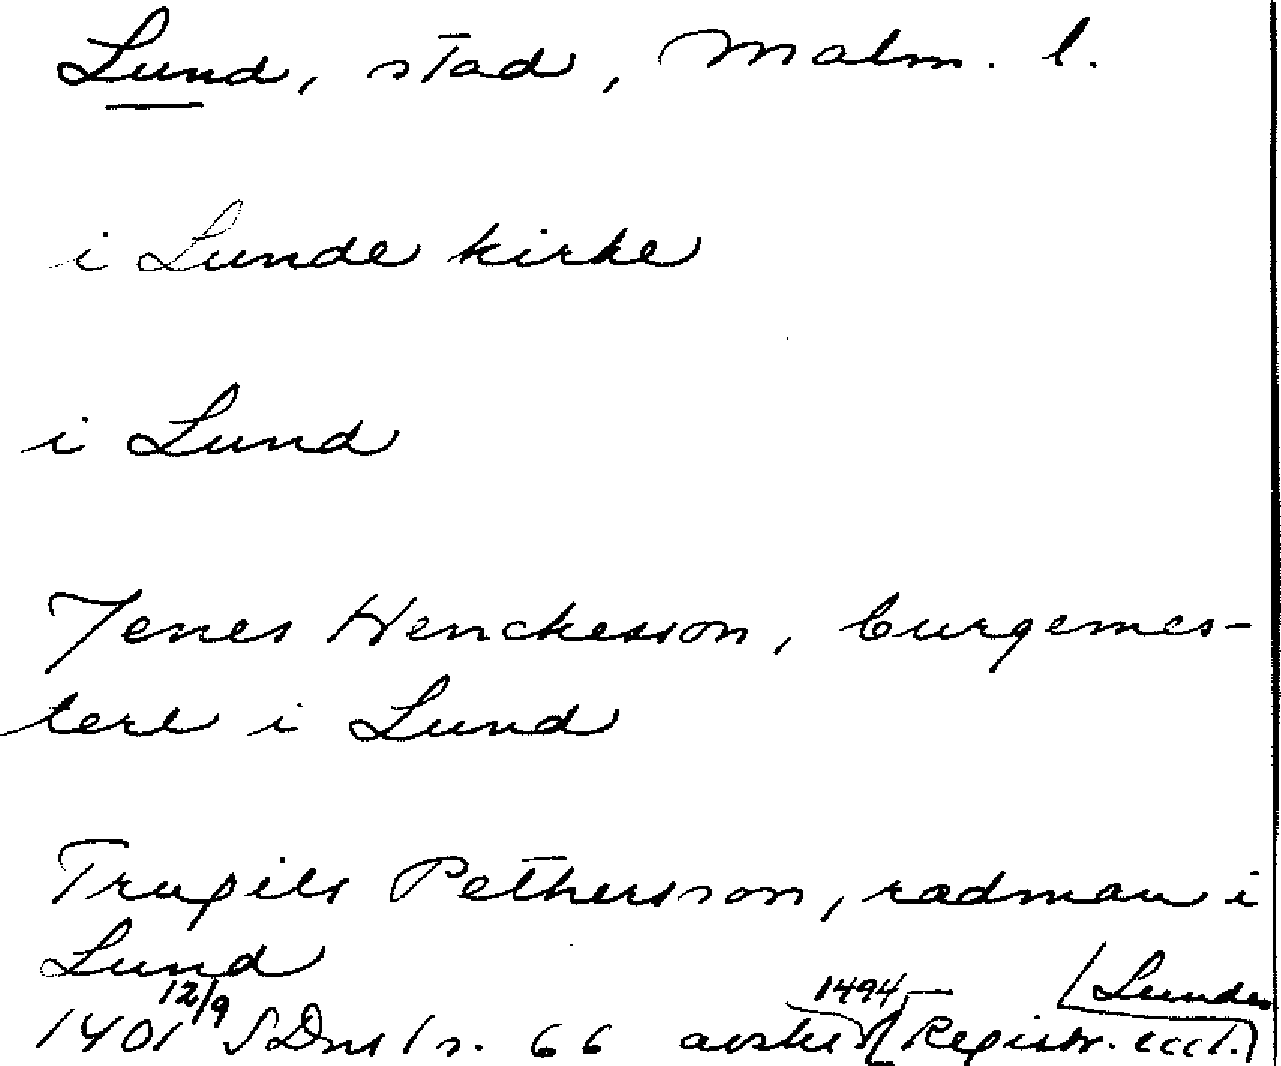 Lund, stad, Malm. l.
i Lunde kirke
i Lund
Jenes Henckesson, burgemes-
tere i Lund
Trugils Pethersson, radman i
Lund
1401 12/9 SDns 1 s. 66 avskr 1494 (Registr. eccl. Lunden